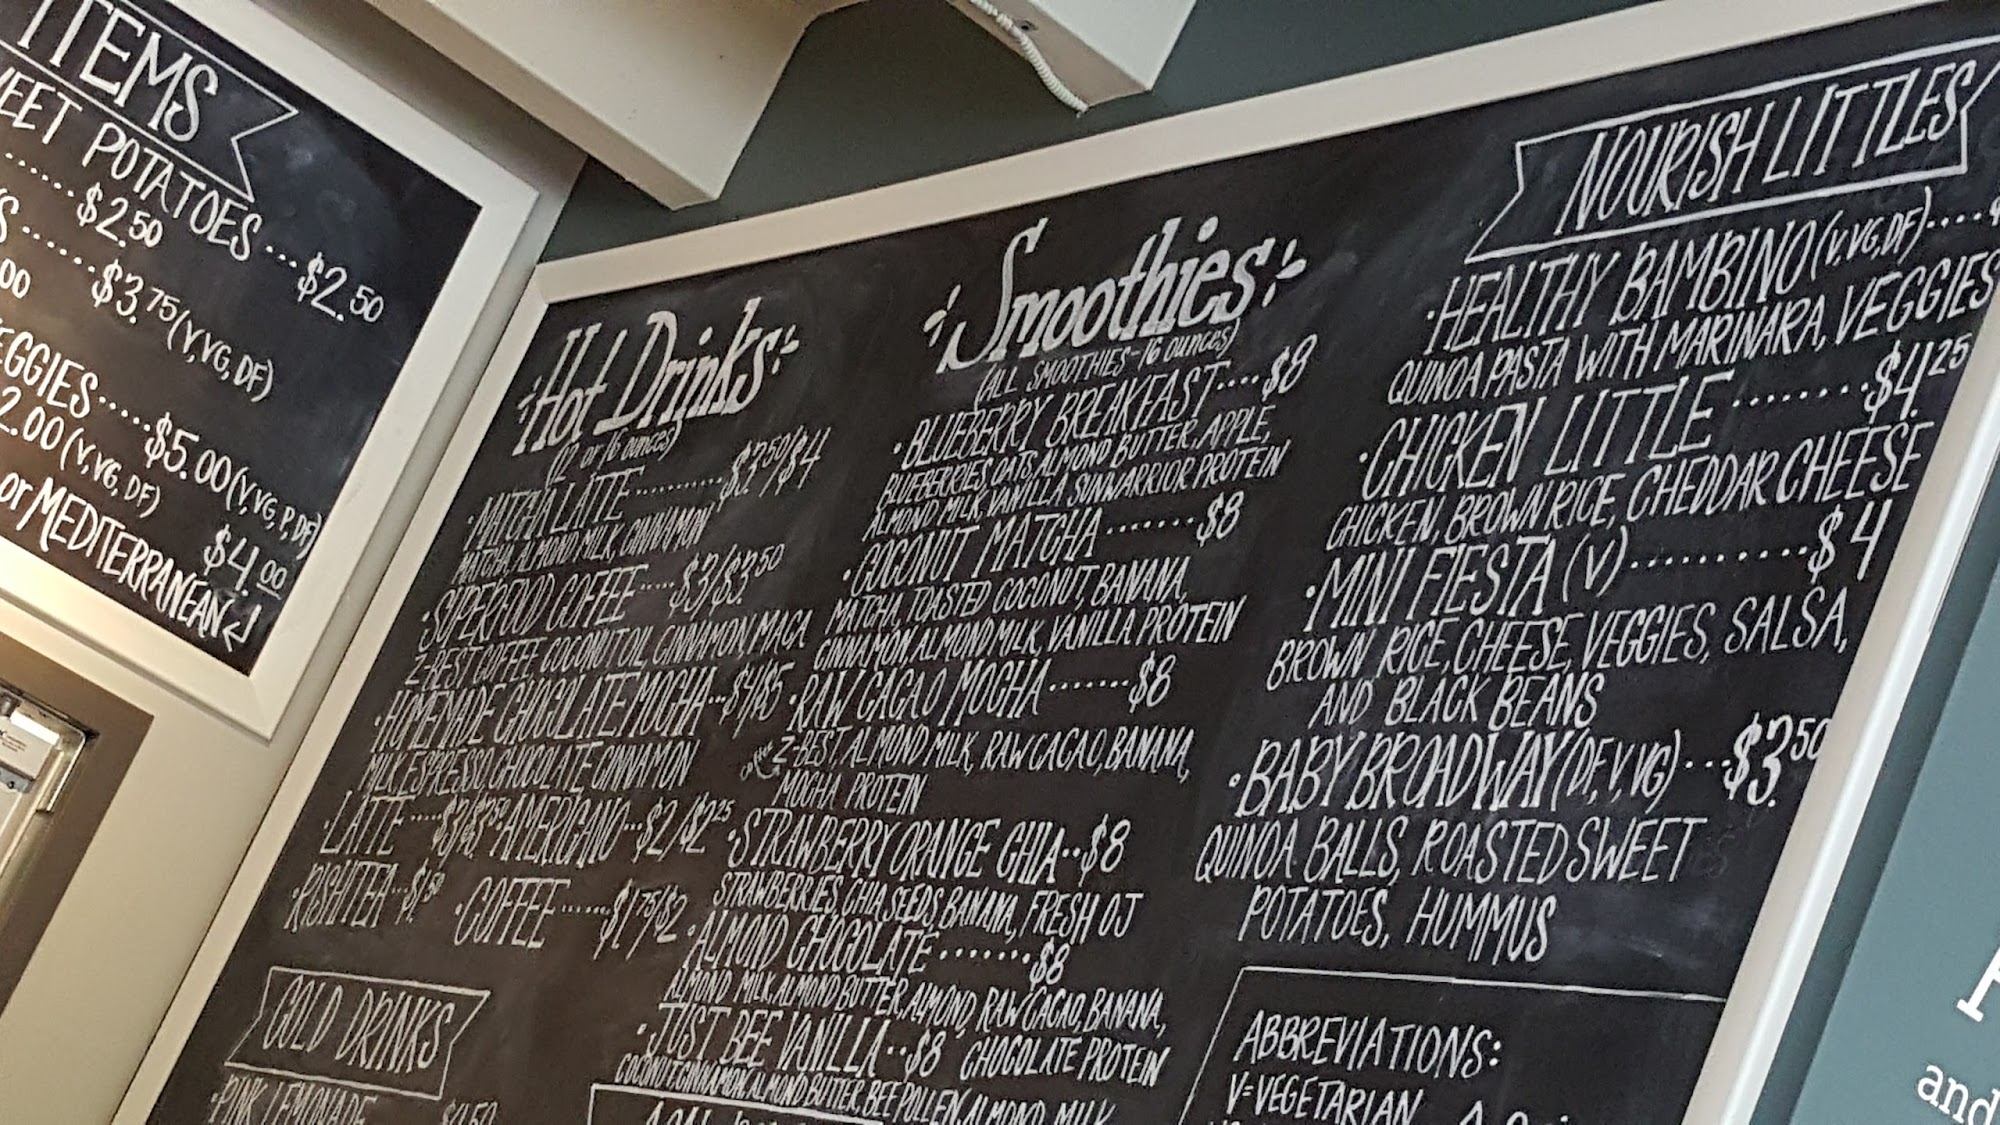 ITEMS
SWEET POTATOES ... $2.50
..... $2.50
S ..... $3.75 (V, VG, DF)
.00
VEGGIES ..... $5.00 (V, VG, P, DF)
2.00 (V, VG, DF)
$4.00
or MEDITERRANEAN
Hot Drinks
(12 or 16 ounces)
·MATCHA LATTE .......... $3.50/$4
MATCHA, ALMOND MILK, CINNAMON
·SUPERFOOD COFFEE .... $3/$3.50
Z-BEST COFFEE, COCONUT OIL, CINNAMON, MACA
·HOMEMADE CHOCOLATE MOCHA... $4/$5
MILK, ESPRESSO, CHOCOLATE, CINNAMON
·LATTE ..... $3/$3.50 ·AMERICANO... $2/$2.25
·RISHI TEA... $1.50 ·COFFEE ...... $1.75/$2
COLD DRINKS
·PINK LEMONADE
Smoothies
(ALL SMOOTHIES-16 OUNCES)
·BLUEBERRY BREAKFAST .... $8
BLUEBERRIES, OATS, ALMOND BUTTER, APPLE,
ALMOND MILK, VANILLA SUNWARRIOR PROTEIN
·COCONUT MATCHA ....... $8
MATCHA, TOASTED COCONUT, BANANA,
CINNAMON, ALMOND MILK, VANILLA PROTEIN
·RAW CACAO MOCHA ....... $8
Z-BEST, ALMOND MILK, RAW CACAO, BANANA,
MOCHA PROTEIN
·STRAWBERRY ORANGE CHIA.. $8
STRAWBERRIES, CHIA SEEDS, BANANA, FRESH OJ
·ALMOND CHOCOLATE ....... $8
ALMOND MILK, ALMOND BUTTER, ALMOND, RAW CACAO, BANANA,
CHOCOLATE PROTEIN
·JUST BEE VANILLA .. $8
COCONUT, CINNAMON, ALMOND BUTTER, BEE POLLEN, ALMOND MILK
NOURISH LITTLES
·HEALTHY BAMBINO (V, VG, DF) ....
QUINOA PASTA WITH MARINARA, VEGGIES
·CHICKEN LITTLE ....... $4.25
CHICKEN, BROWN RICE, CHEDDAR CHEESE
·MINI FIESTA (V) .......... $4
BROWN RICE, CHEESE, VEGGIES, SALSA,
AND BLACK BEANS
·BABY BROADWAY (DF, V, VG) ... $3.50
QUINOA BALLS, ROASTED SWEET
POTATOES, HUMMUS
ABBREVIATIONS:
V=VEGETARIAN
and